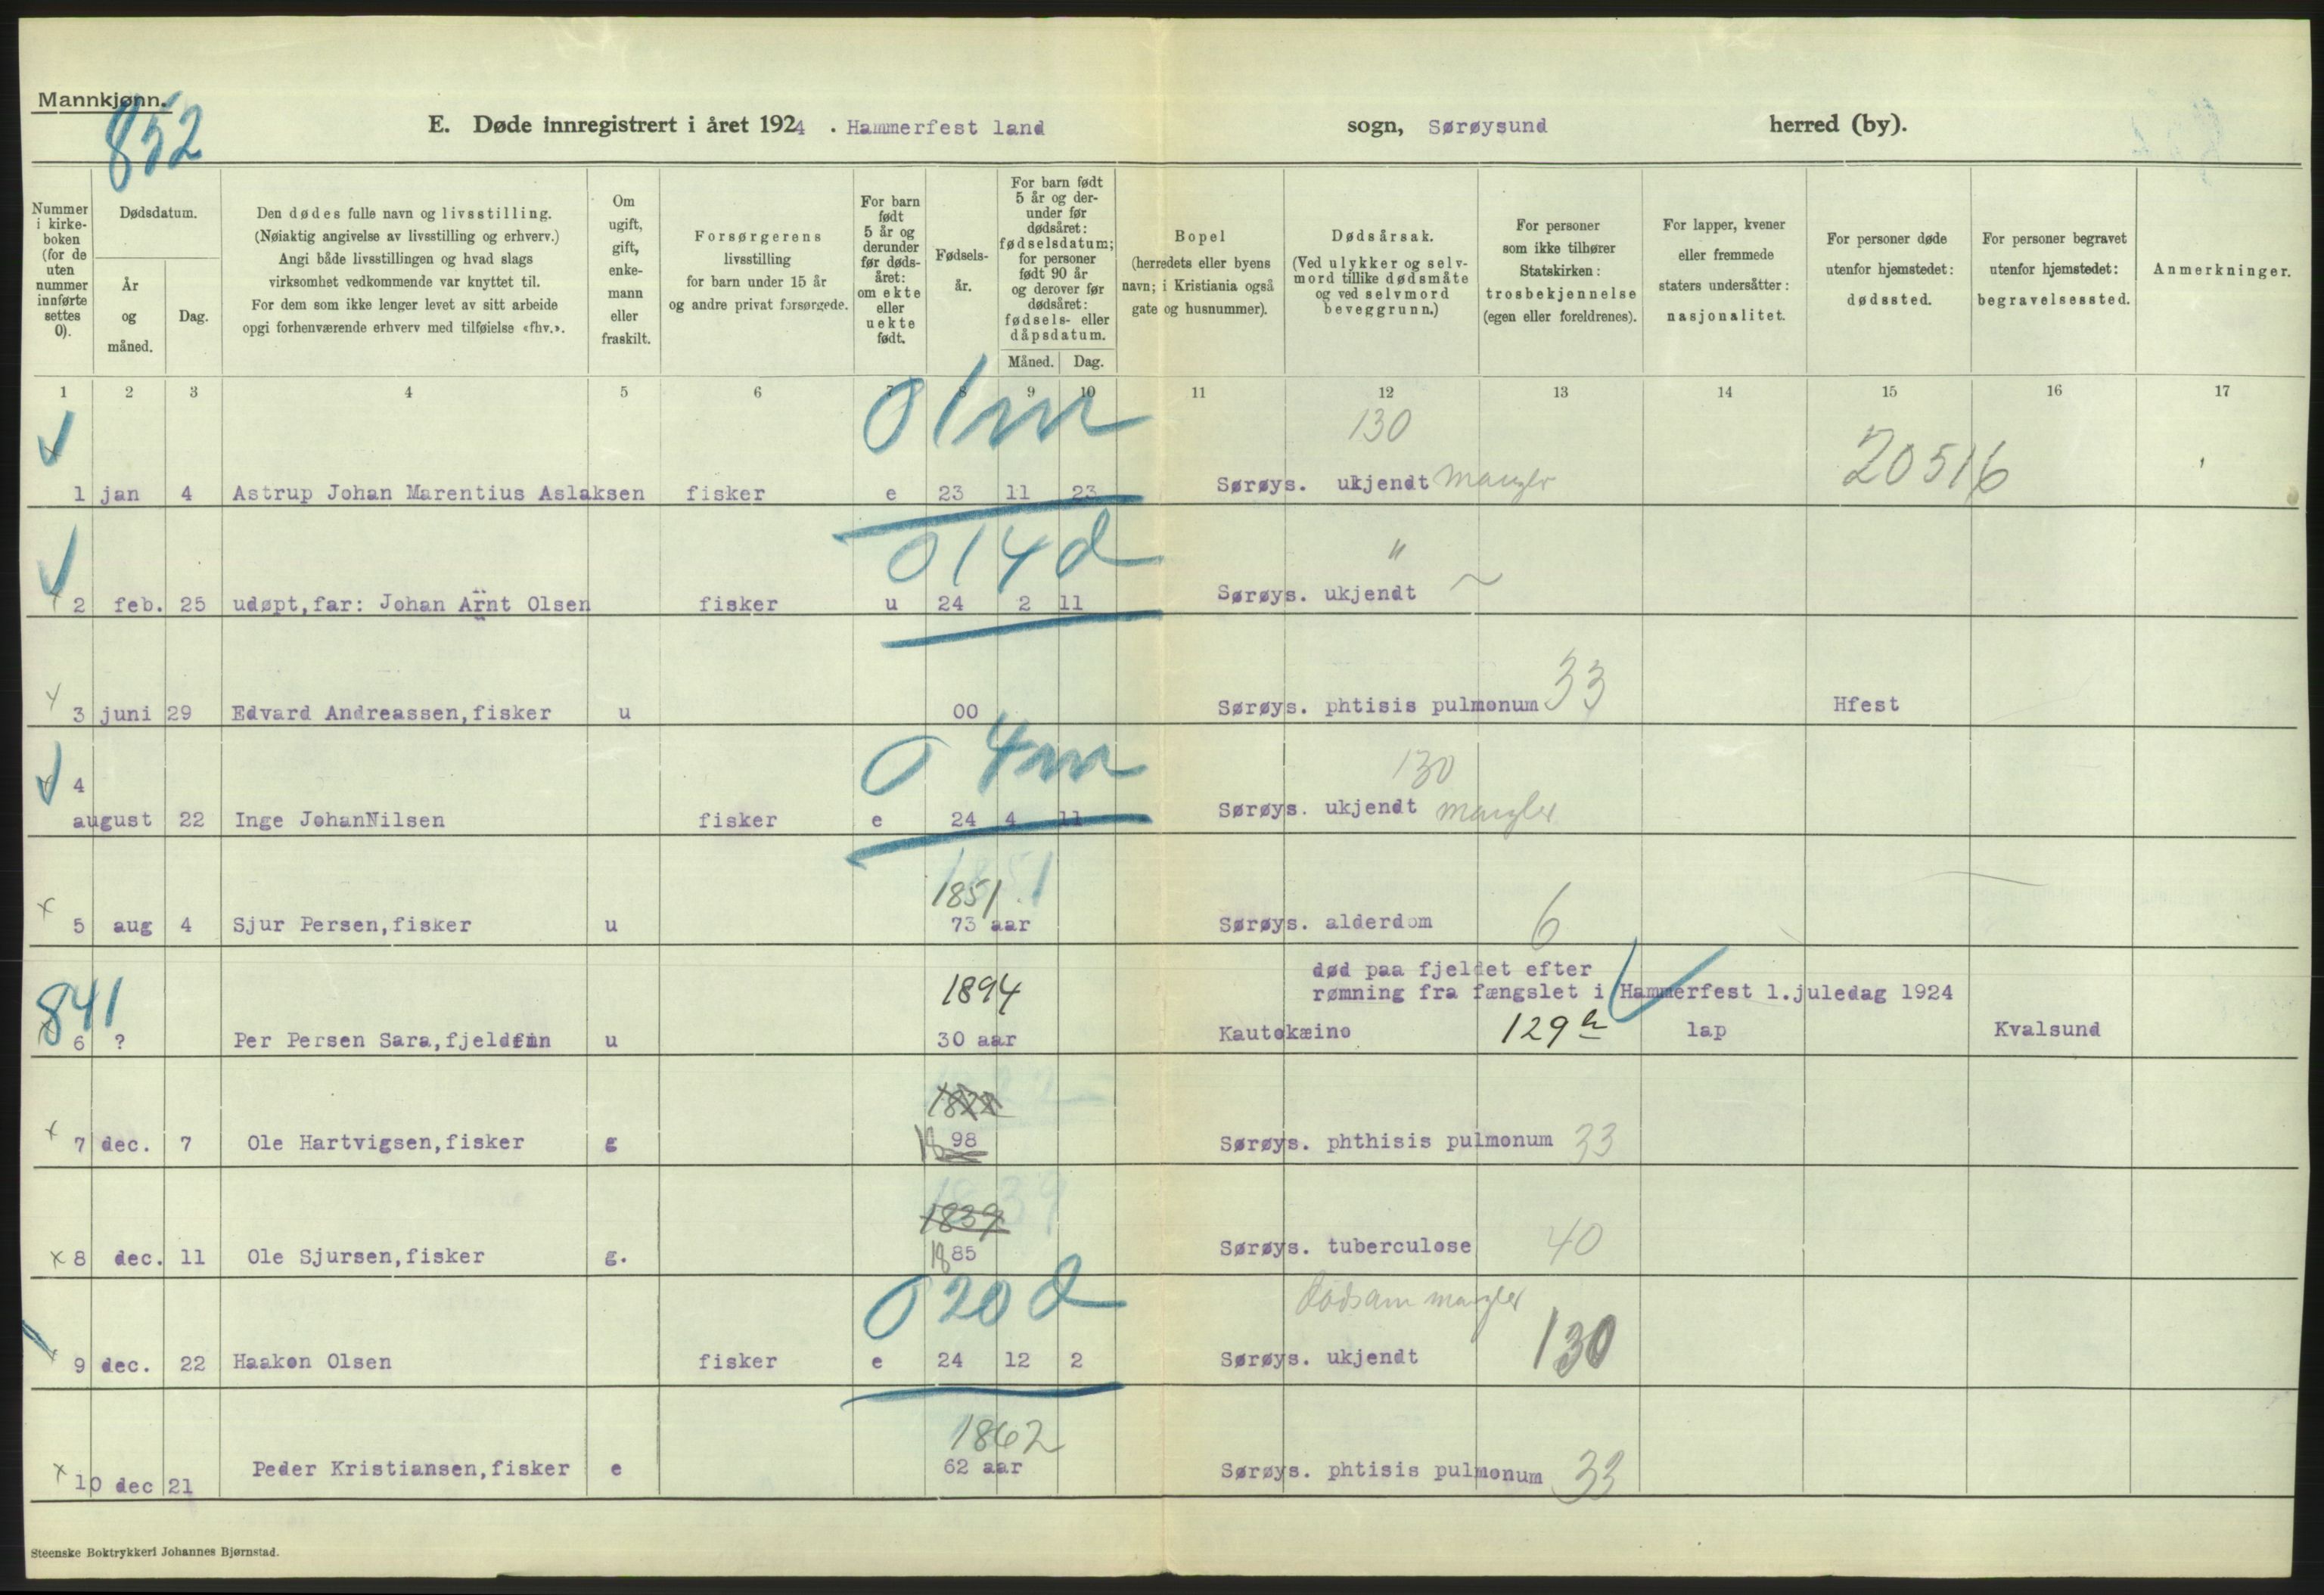 Mannkjønn.
852
E. Døde innregistrert i året 1924 . Hammerfest land sogn, Sørøysund herred (by).
Nummer i kirke- boken (for de uten nummer innførte settes 0).
Dødsdatum.
År og måned.
Dag.
Den dødes fulle navn og livsstilling.
(Nøiaktig angivelse av livsstilling og erhverv.)
Angi både livsstillingen og hvad slags
virksomhet vedkommende var knyttet til.
For dem som ikke lenger levet av sitt arbeide
opgi forhenværende erhverv med tilføielse «fhv.».
Om ugift, gift, enke- mann eller fraskilt.
Forsørgerens
livsstilling
for barn under 15 år
og andre privat forsørgede.
For barn født 5 år og derunder før døds- året: om ekte eller uekte født.
Fødsels- år.
For barn født 5 år og der- under før dødsåret: fødselsdatum; for personer født 90 år og derover før dødsåret: fødsels- eller dåpsdatum.
Måned. Dag.
Bopel
(herredets eller byens
navn; i Kristiania også
gate og husnummer).
Dødsårsak.
(Ved ulykker og selv-
mord tillike dødsmåte
og ved selvmord
beveggrunn.)
For personer
som ikke tilhører
Statskirken:
trosbekjennelse
(egen eller foreldrenes).
For lapper, kvener
eller fremmede
staters undersåtter:
nasjonalitet.
For personer døde
utenfor hjemstedet:
dødssted.
For personer begravet
utenfor hjemstedet:
begravelsessted.
Anmerkninger.
1 2 3 4 5 6 7 8 9 10 11 12 13 14 15 16 17
0 1 m 130 20516
1 jan 4 Astrup Johan Marentius Aslaksen fisker e 23 11 23 Sørøys. ukjendt mangler
0 14 d "
2 feb. 25 udøpt,far: Johan Arnt Olsen fisker u 24 2 11 Sørøys. ukjendt ~
3 juni 29 Edvard Andreassen,fisker u 00 Sørøys. phtisis pulmonum 33 Hfest
0 4 m 130
4
august 22 Inge JohanNilsen fisker e 24 4 11 Sørøys. ukjendt mangler
1851
5 aug 4 Sjur Persen,fisker u 73 aar Sørøys. alderdom 6
841 1894 død paa fjeldet efter
rømning fra fængslet i Hammerfest 1.juledag 1924
6 ? Per Persen Sara,fjeldfin u 30 aar Kautokæino 129 lap Kvalsund
7 dec. 7 Ole Hartvigsen,fisker g 1898 Sørøys. phthisis pulmonum 33
1839
8 dec. 11 Ole Sjursen,fisker g. 1885 Sørøys. tuberculose 40
0 20 d mangler
9 dec. 22 Haakon Olsen fisker e 24 12 2 Sørøys. ukjendt 130
1862
10 dec 21 Peder Kristiansen,fisker e 62 aar Sørøys. phtisis pulmonum 33
Steenske Boktrykkeri Johannes Bjørnstad.